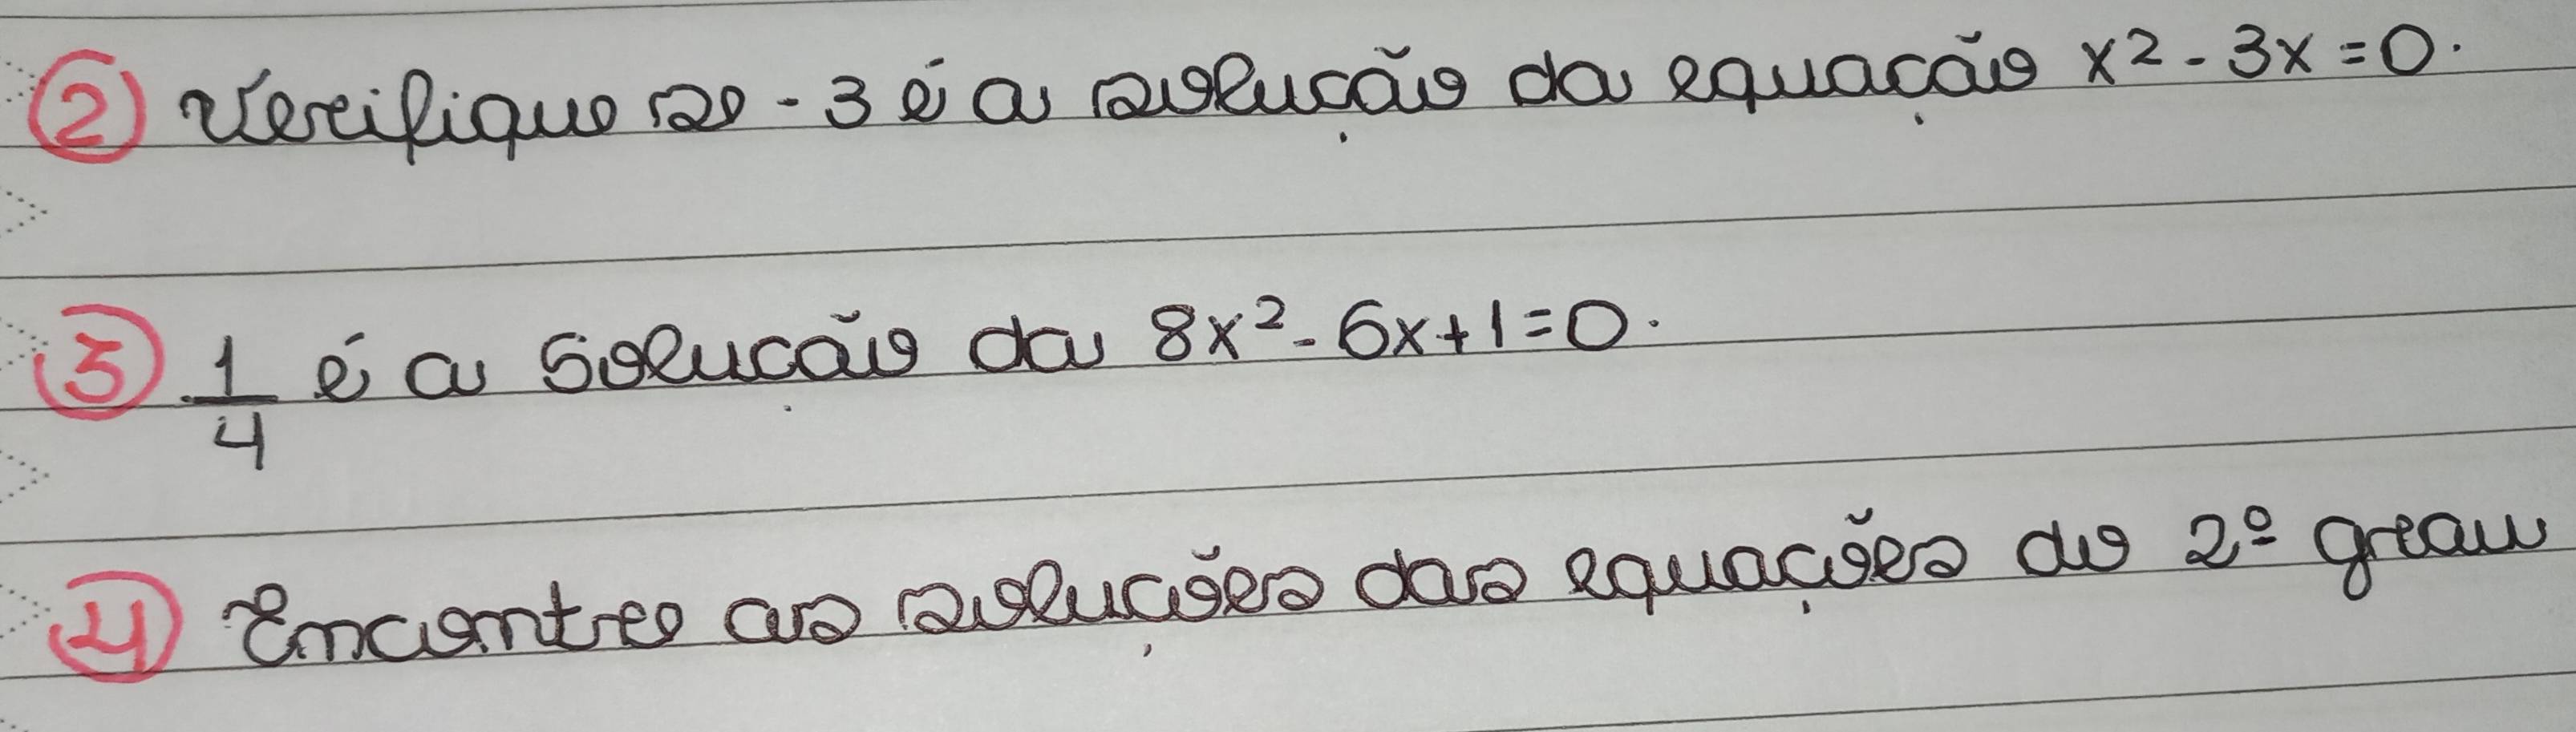 ② Verifique se -3 é a solução da equação x² - 3x = 0.
③ 1/4 é a solução da 8x² - 6x + 1 = 0.
④ Encontre as soluções das equações do 2º grau